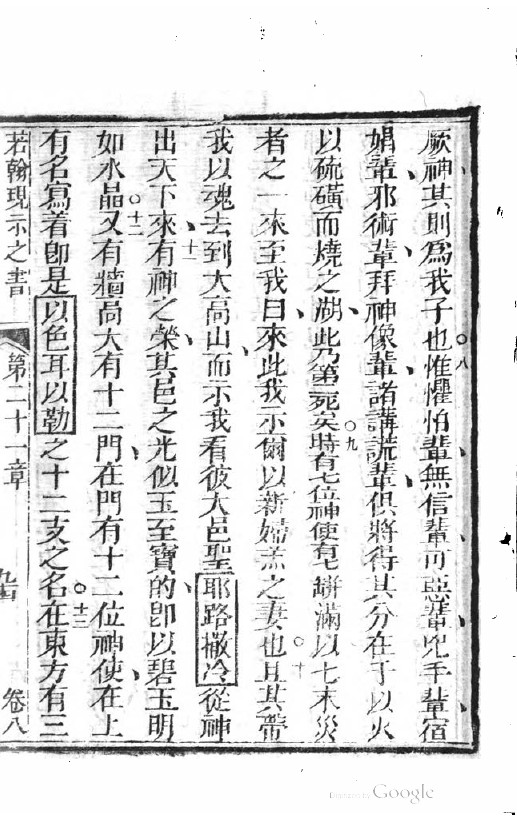 厥神其則爲我子也○八惟懼怕輩無信輩可惡輩兇手輩宿
娼輩邪術輩拜神像輩諸講謊輩俱將得其分在于以火
以硫磺而燒之湖此乃第二死矣○九時有七位神使有七缾滿以七末災
者之一來至我曰來此我示爾以新婦羔之妻也○十且其帶
我以魂去到大高山而示我看彼大邑聖耶路撒冷從神
出天下來○十一有神之榮其邑之光似玉至寶的卽以碧玉明
如水晶○十二又有牆高大有十二門在門有十二位神使在上
有名寫着卽是以色耳以勒之十二支之名○十三在東方有三
若翰現示之書 第二十一章 卷八
Digitized by Google